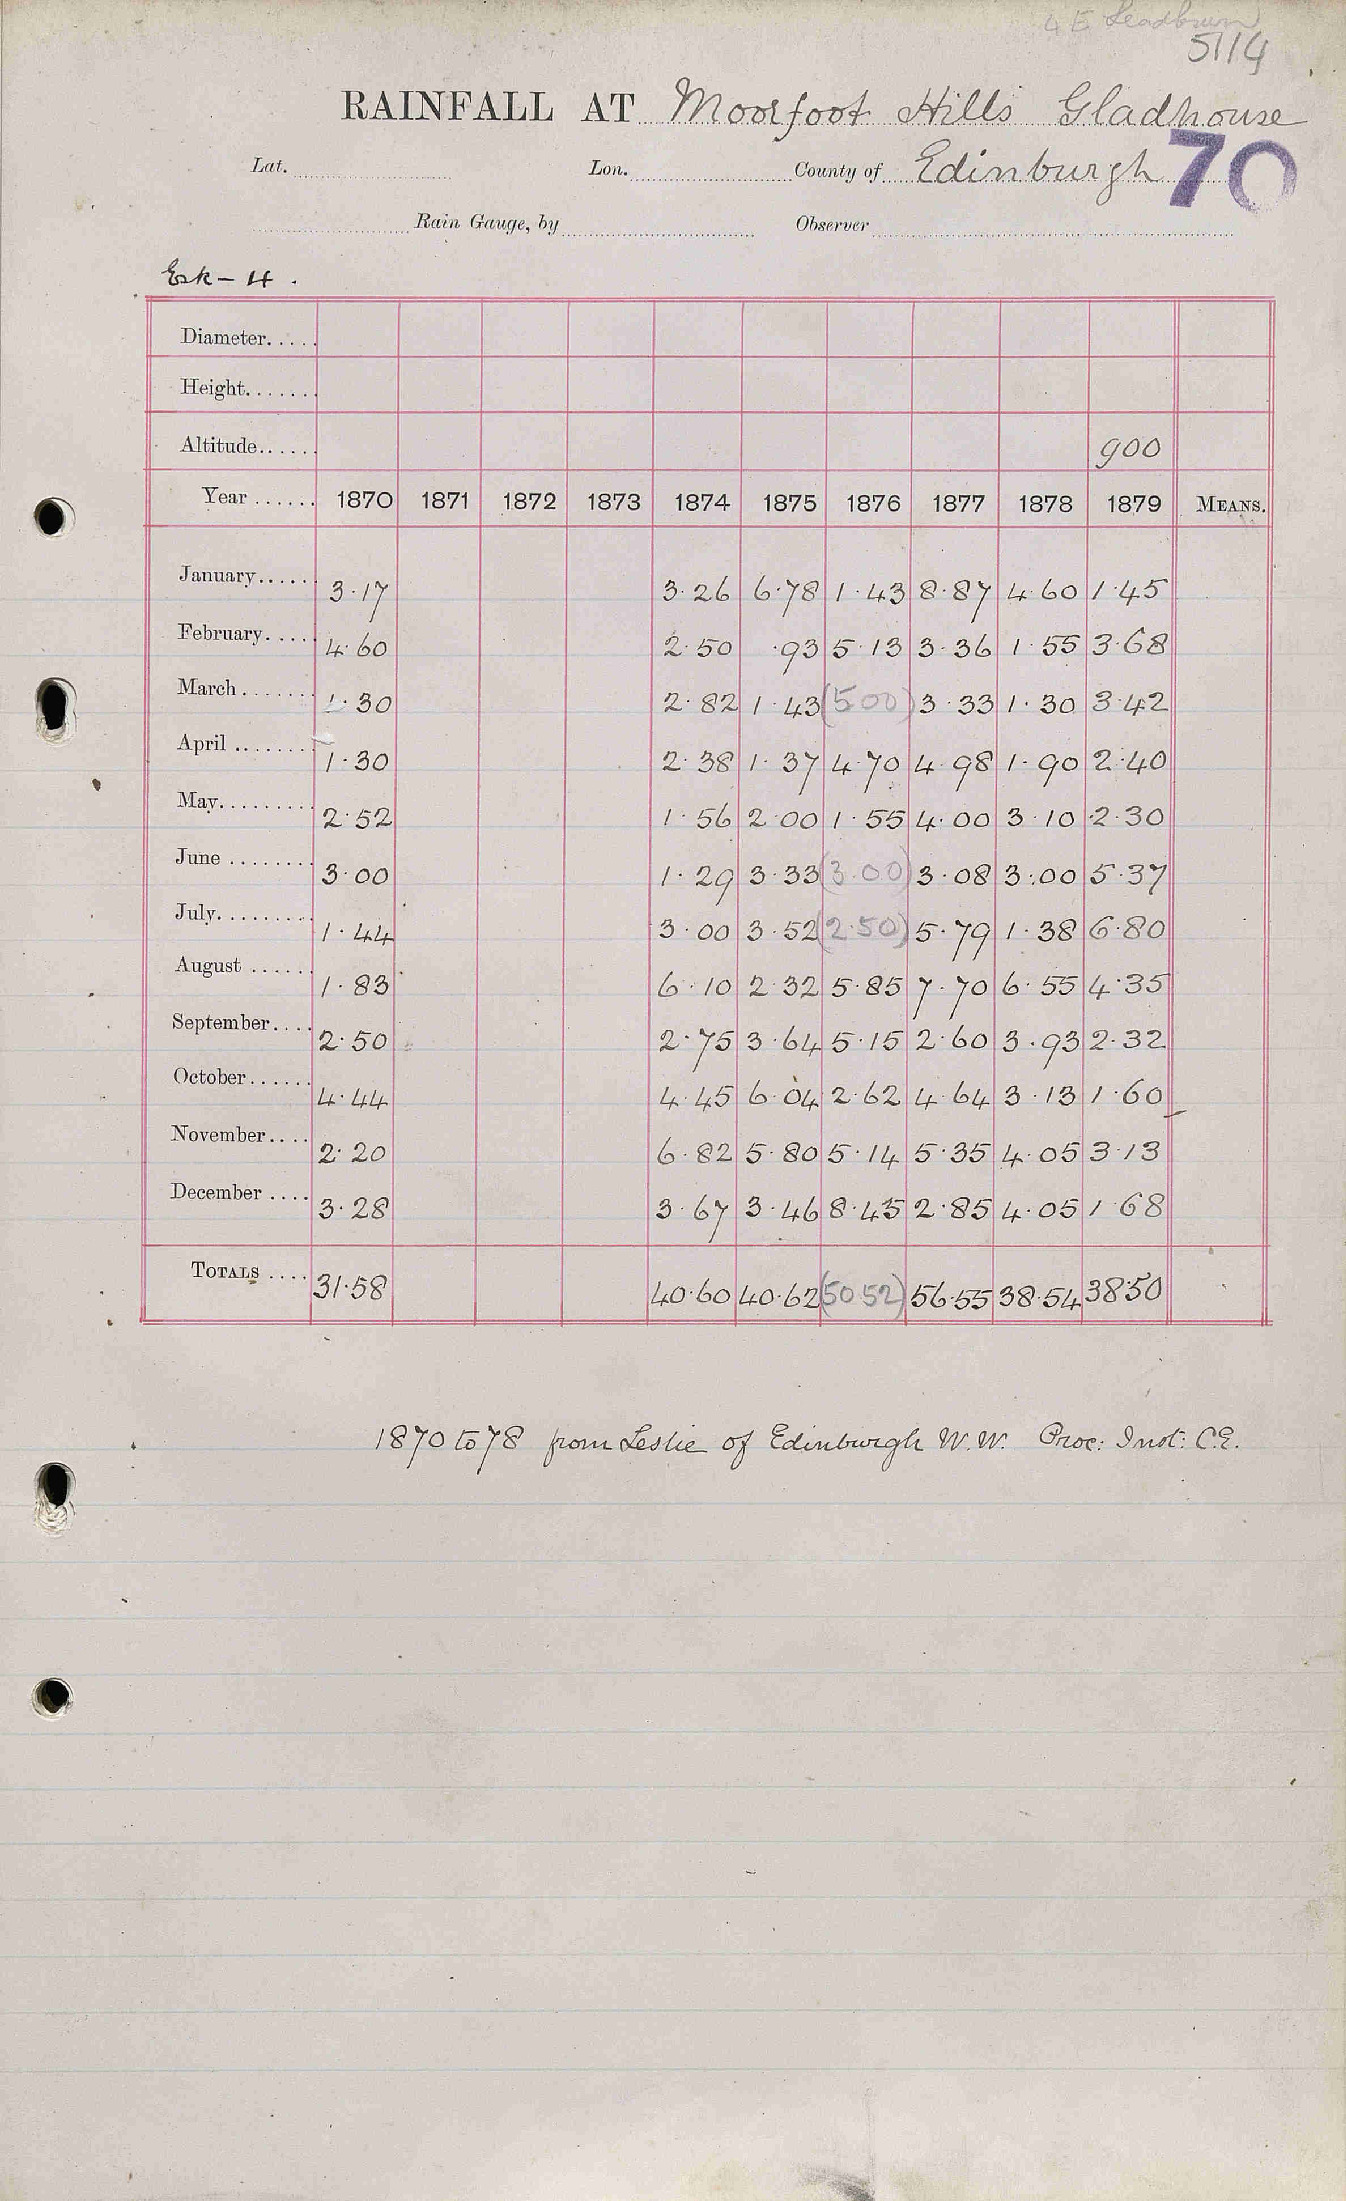 4 E Leadburn
5114
RAINFALL AT Moorfoot Hills Gladhouse
Lat. Lon. County of Edinburgh 70
Rain Gauge, by Observer
Esk - 4.
Diameter.....
Height.......
Altitude...... 900
Year ...... 1870 1871 1872 1873 1874 1875 1876 1877 1878 1879 MEANS.
January...... 3.17 3.26 6.78 1.43 8.87 4.60 1.45
February..... 4.60 2.50 .93 5.13 3.36 1.55 3.68
March ....... 1.30 2.82 1.43 (5.00) 3.33 1.30 3.42
April ........ 1.30 2.38 1.37 4.70 4.98 1.90 2.40
May.......... 2.52 1.56 2.00 1.55 4.00 3.10 2.30
June ........ 3.00 1.29 3.33 (3.00) 3.08 3.00 5.37
July.......... 1.44 3.00 3.52 (2.50) 5.79 1.38 6.80
August ...... 1.83 6.10 2.32 5.85 7.70 6.55 4.35
September.... 2.50 2.75 3.64 5.15 2.60 3.93 2.32
October...... 4.44 4.45 6.04 2.62 4.64 3.13 1.60
November.... 2.20 6.82 5.80 5.14 5.35 4.05 3.13
December .... 3.28 3.67 3.46 8.45 2.85 4.05 1.68
TOTALS .... 31.58 40.60 40.62 (50.52) 56.55 38.54 38.50
1870 to 78 from Leslie of Edinburgh W.W. Proc: Inst: C.E.